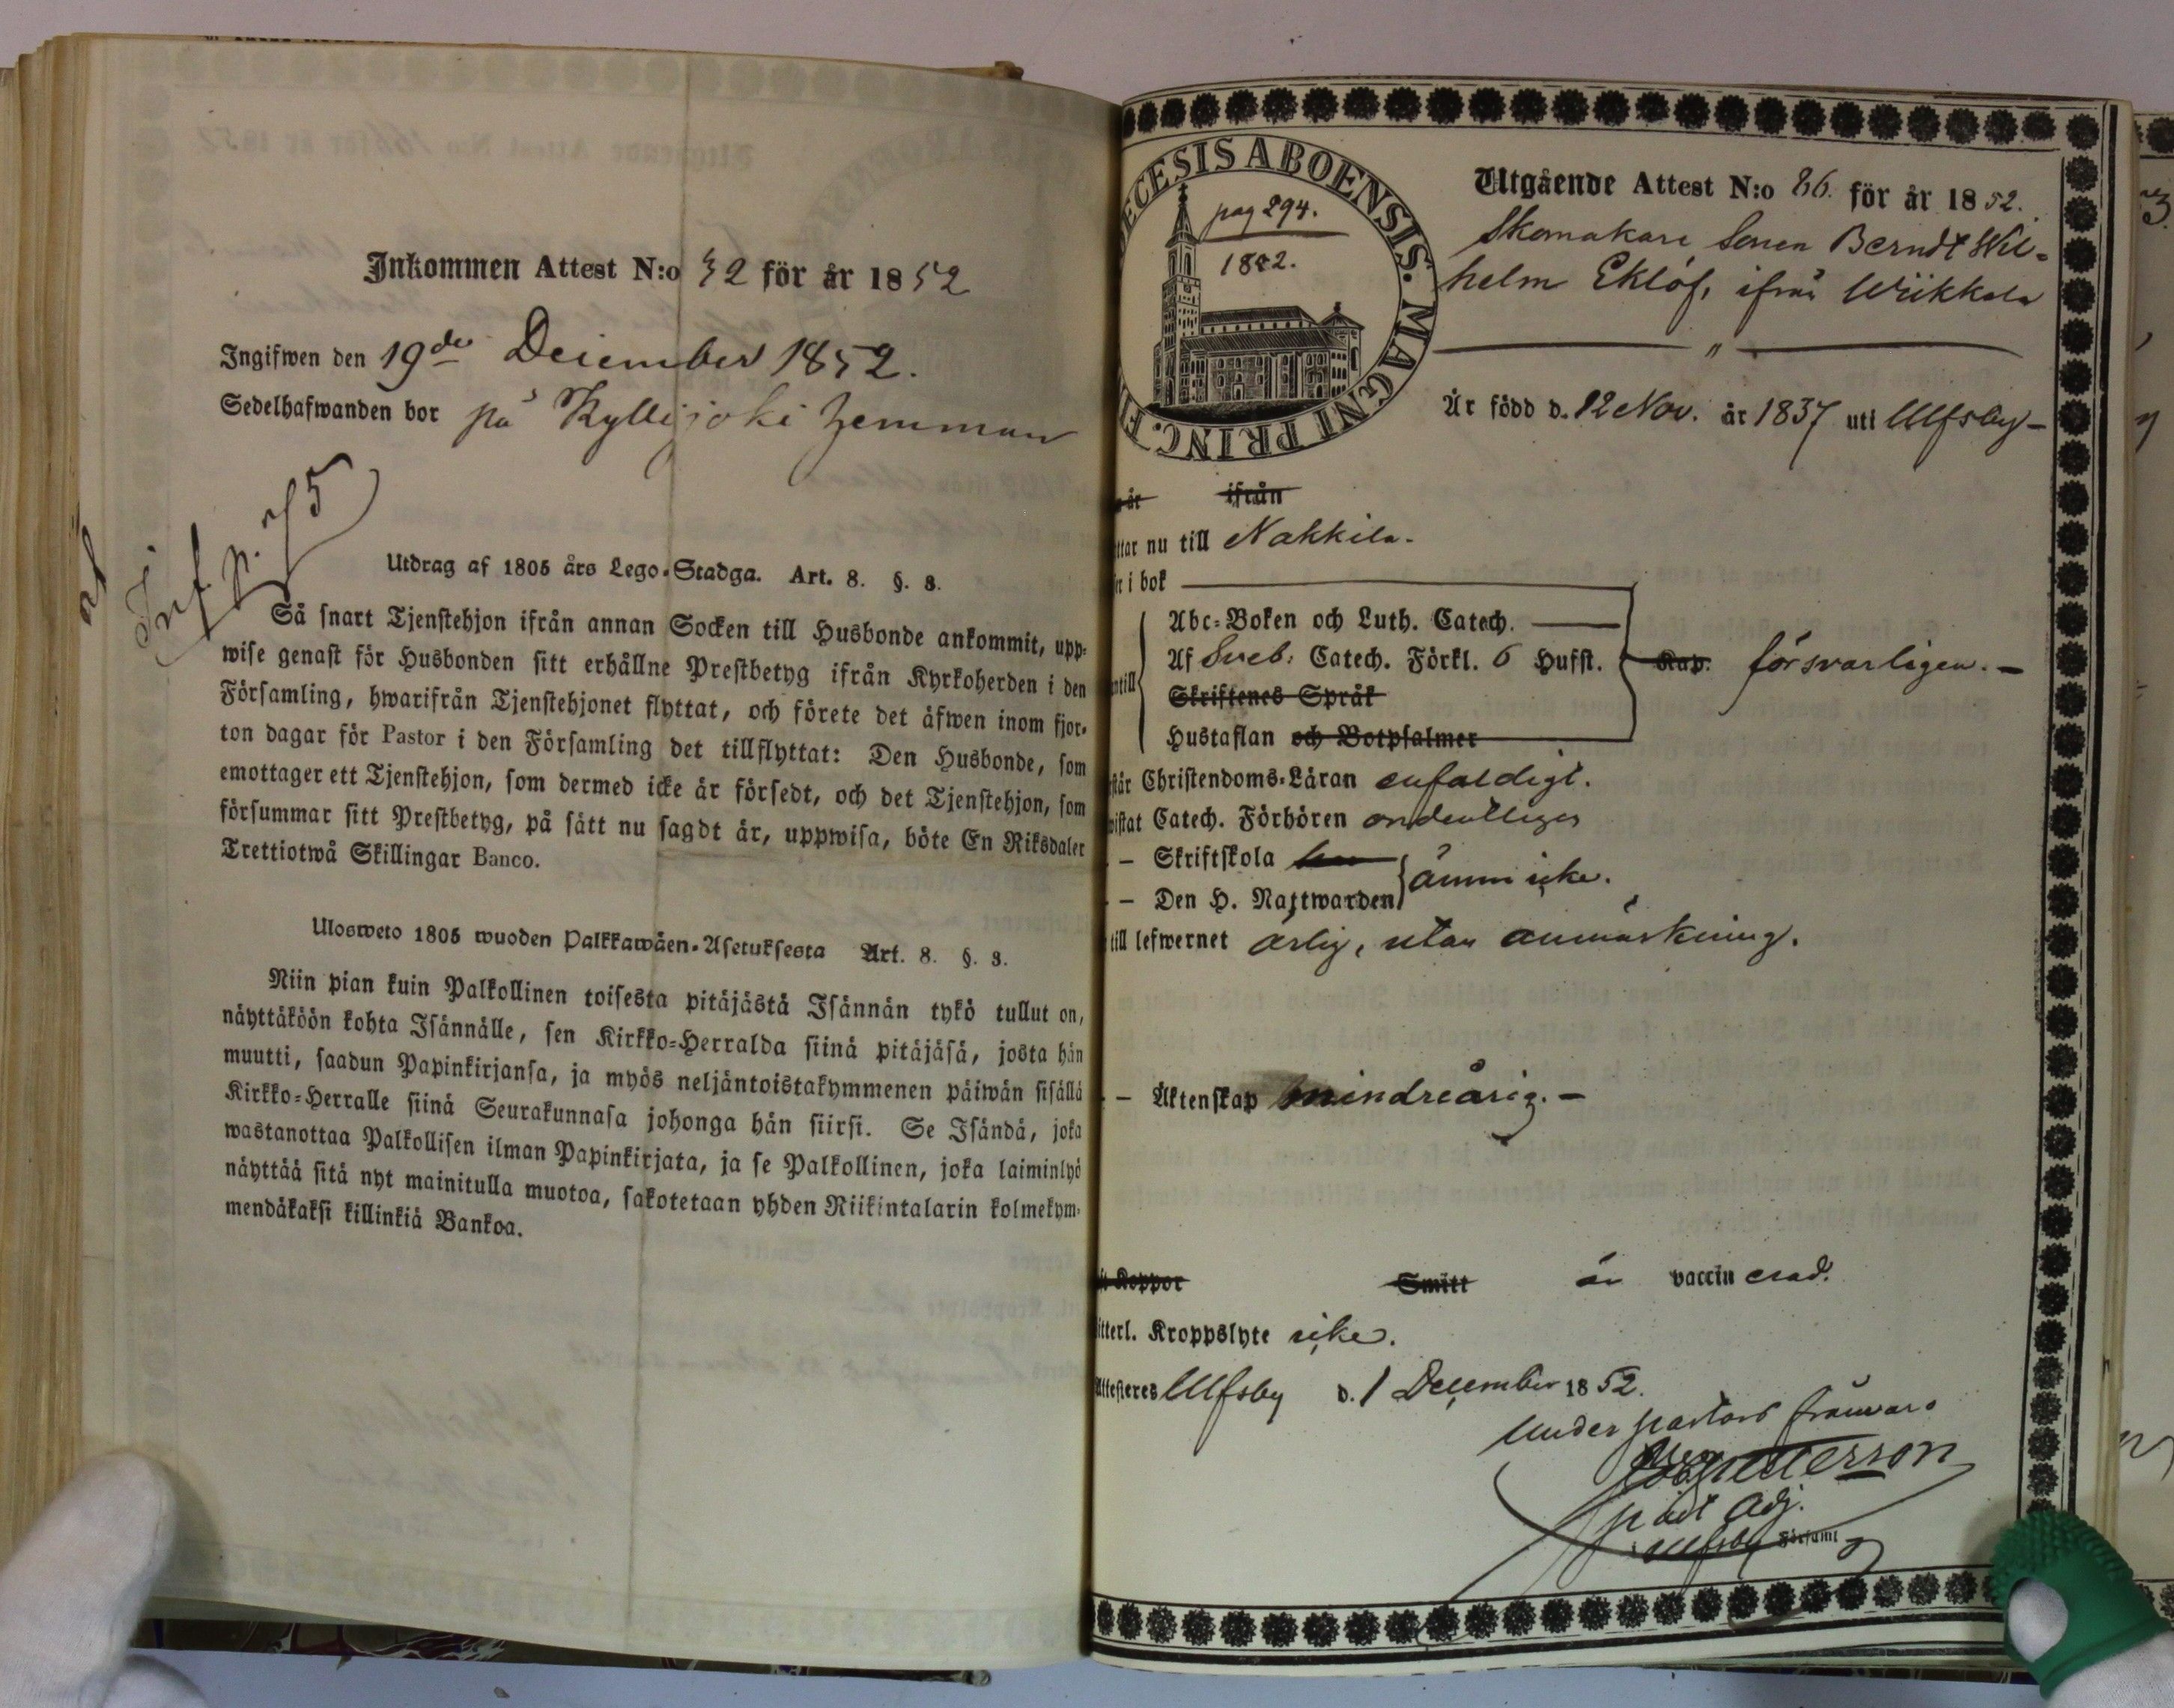 Inkommen Attest N:o 32 för år 1852
Ingifwen den 19de December 1852.
Sedelhafwanden bor på Kyllijoki hemman
Inf. p. 75
Utdrag af 1805 års Lego-Stadga. Art. 8. §. 3.
Så snart Tjenstehjon ifrån annan Socken till Husbonde ankommit, upp-
wise genast för Husbonden sitt erhållne Prestbetyg ifrån Kyrkoherden i den
Församling, hwarifrån Tjenstehjonet flyttat, och förete det äfwen inom fjor-
ton dagar för Pastor i den Församling det tillflyttat: Den Husbonde, som
emottager ett Tjenstehjon, som dermed icke är försedt, och det Tjenstehjon, som
försummar sitt Prestbetyg, på sätt nu sagdt är, uppwisa, böte En Riksdaler
Trettiotwå Skillingar Banco.
Ulosweto 1805 wuoden Palkkawäen-Asetuksesta Art. 8. §. 3.
Niin pian kuin Palkollinen toisesta pitäjästä Isännän tykö tullut on,
näyttäköön kohta Isännälle, sen Kirkko-Herralda siinä pitäjäsä, josta hän
muutti, saadun Papinkirjansa, ja myös neljäntoistakymmenen päiwän sisällä
Kirkko-Herralle siinä Seurakunnasa johonga hän siirsi. Se Isändä, joka
wastanottaa Palkollisen ilman Papinkirjata, ja se Palkollinen, joka laiminlyö
näyttää sitä nyt mainitulla muotoa, sakotetaan yhden Riikintalarin kolmekym-
mendäkaksi killinkiä Bankoa.
ECESIS ABOENSIS. MAGNI PRINC. F
pag 294.
1842.
Utgående Attest N:o 86. för år 1852.
Skomakare Sonen Berndt Wil-
helm Eklöf, ifrån Wiikkala
Är född d. 12 Nov. år 1837 uti Ulfsby
år ifrån
ttar nu till Nakkila.
i bok
Abc-Boken och Luth. Catech.
Af Sveb. Catech. Förkl. 6 Hufst. Kap. försvarligen.
ntill
Skriftenes Språk
Hustaflan och Botpsalmer
står Christendoms-Läran enfaldigt.
wistat Catech. Förhören ordentligen
— Skriftskola
ännu icke.
— Den H. Nattwarden
till lefwernet ärlig, utan anmärkning.
— Äktenskap minderårig.
t Koppor Smitt är vaccinerad.
itterl. Kroppslyte icke.
Attesteres Ulfsby d. 1 December 1852.
Under pastors frånvaro
petterson
past Adj.
Ulfsby Församl